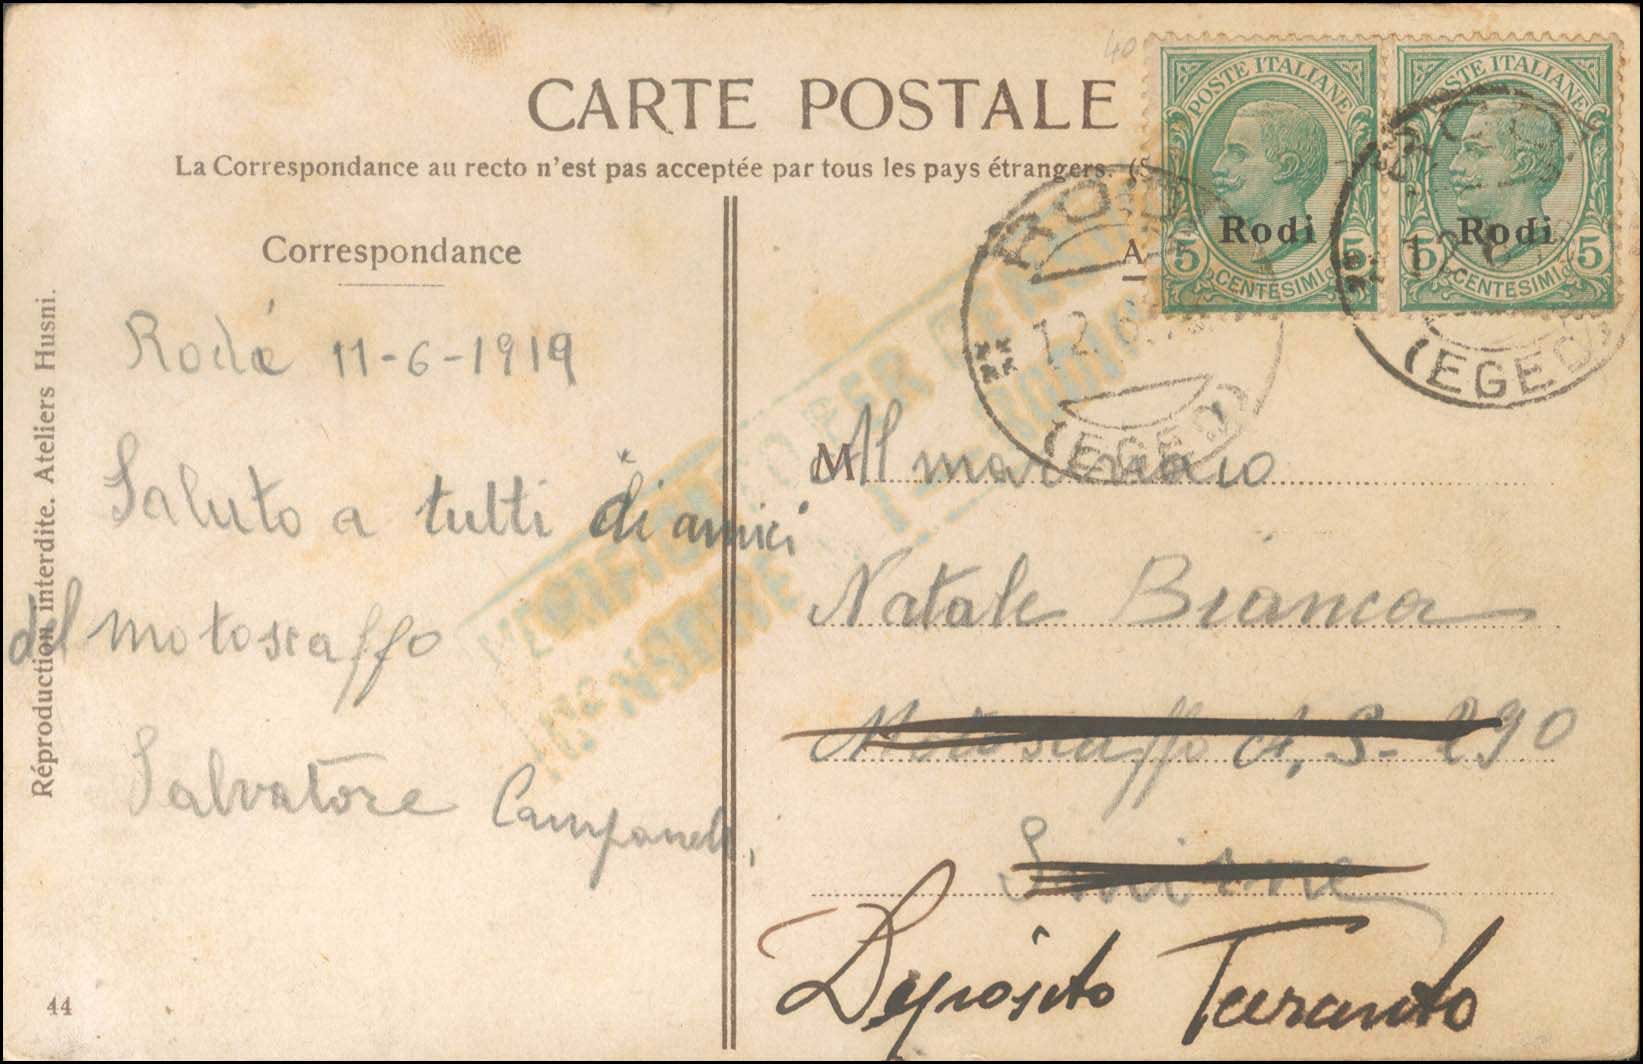 40
CARTE POSTALE
La Correspondance au recto n'est pas acceptée par tous les pays étrangers. (S
Correspondance
A
POSTE ITALIANE
Rodi
5 5
CENTESIMI
POSTE ITALIANE
Rodi
5 5
CENTESIMI
RODI
12.6.
(EGEO)
RODI
12.6
(EGEO)
VERIFICATO PER CENSURA
10° CENSORE - RODI
Rodi 11-6-1919
Saluto a tutti di amici
del motoscaffo
Salvatore Campanell.
M
Al marinaio
Natale Bianca
Motoscaffo A, S- 290
Smirne
Deposito Taranto
Réproduction interdite. Ateliers Husni.
44